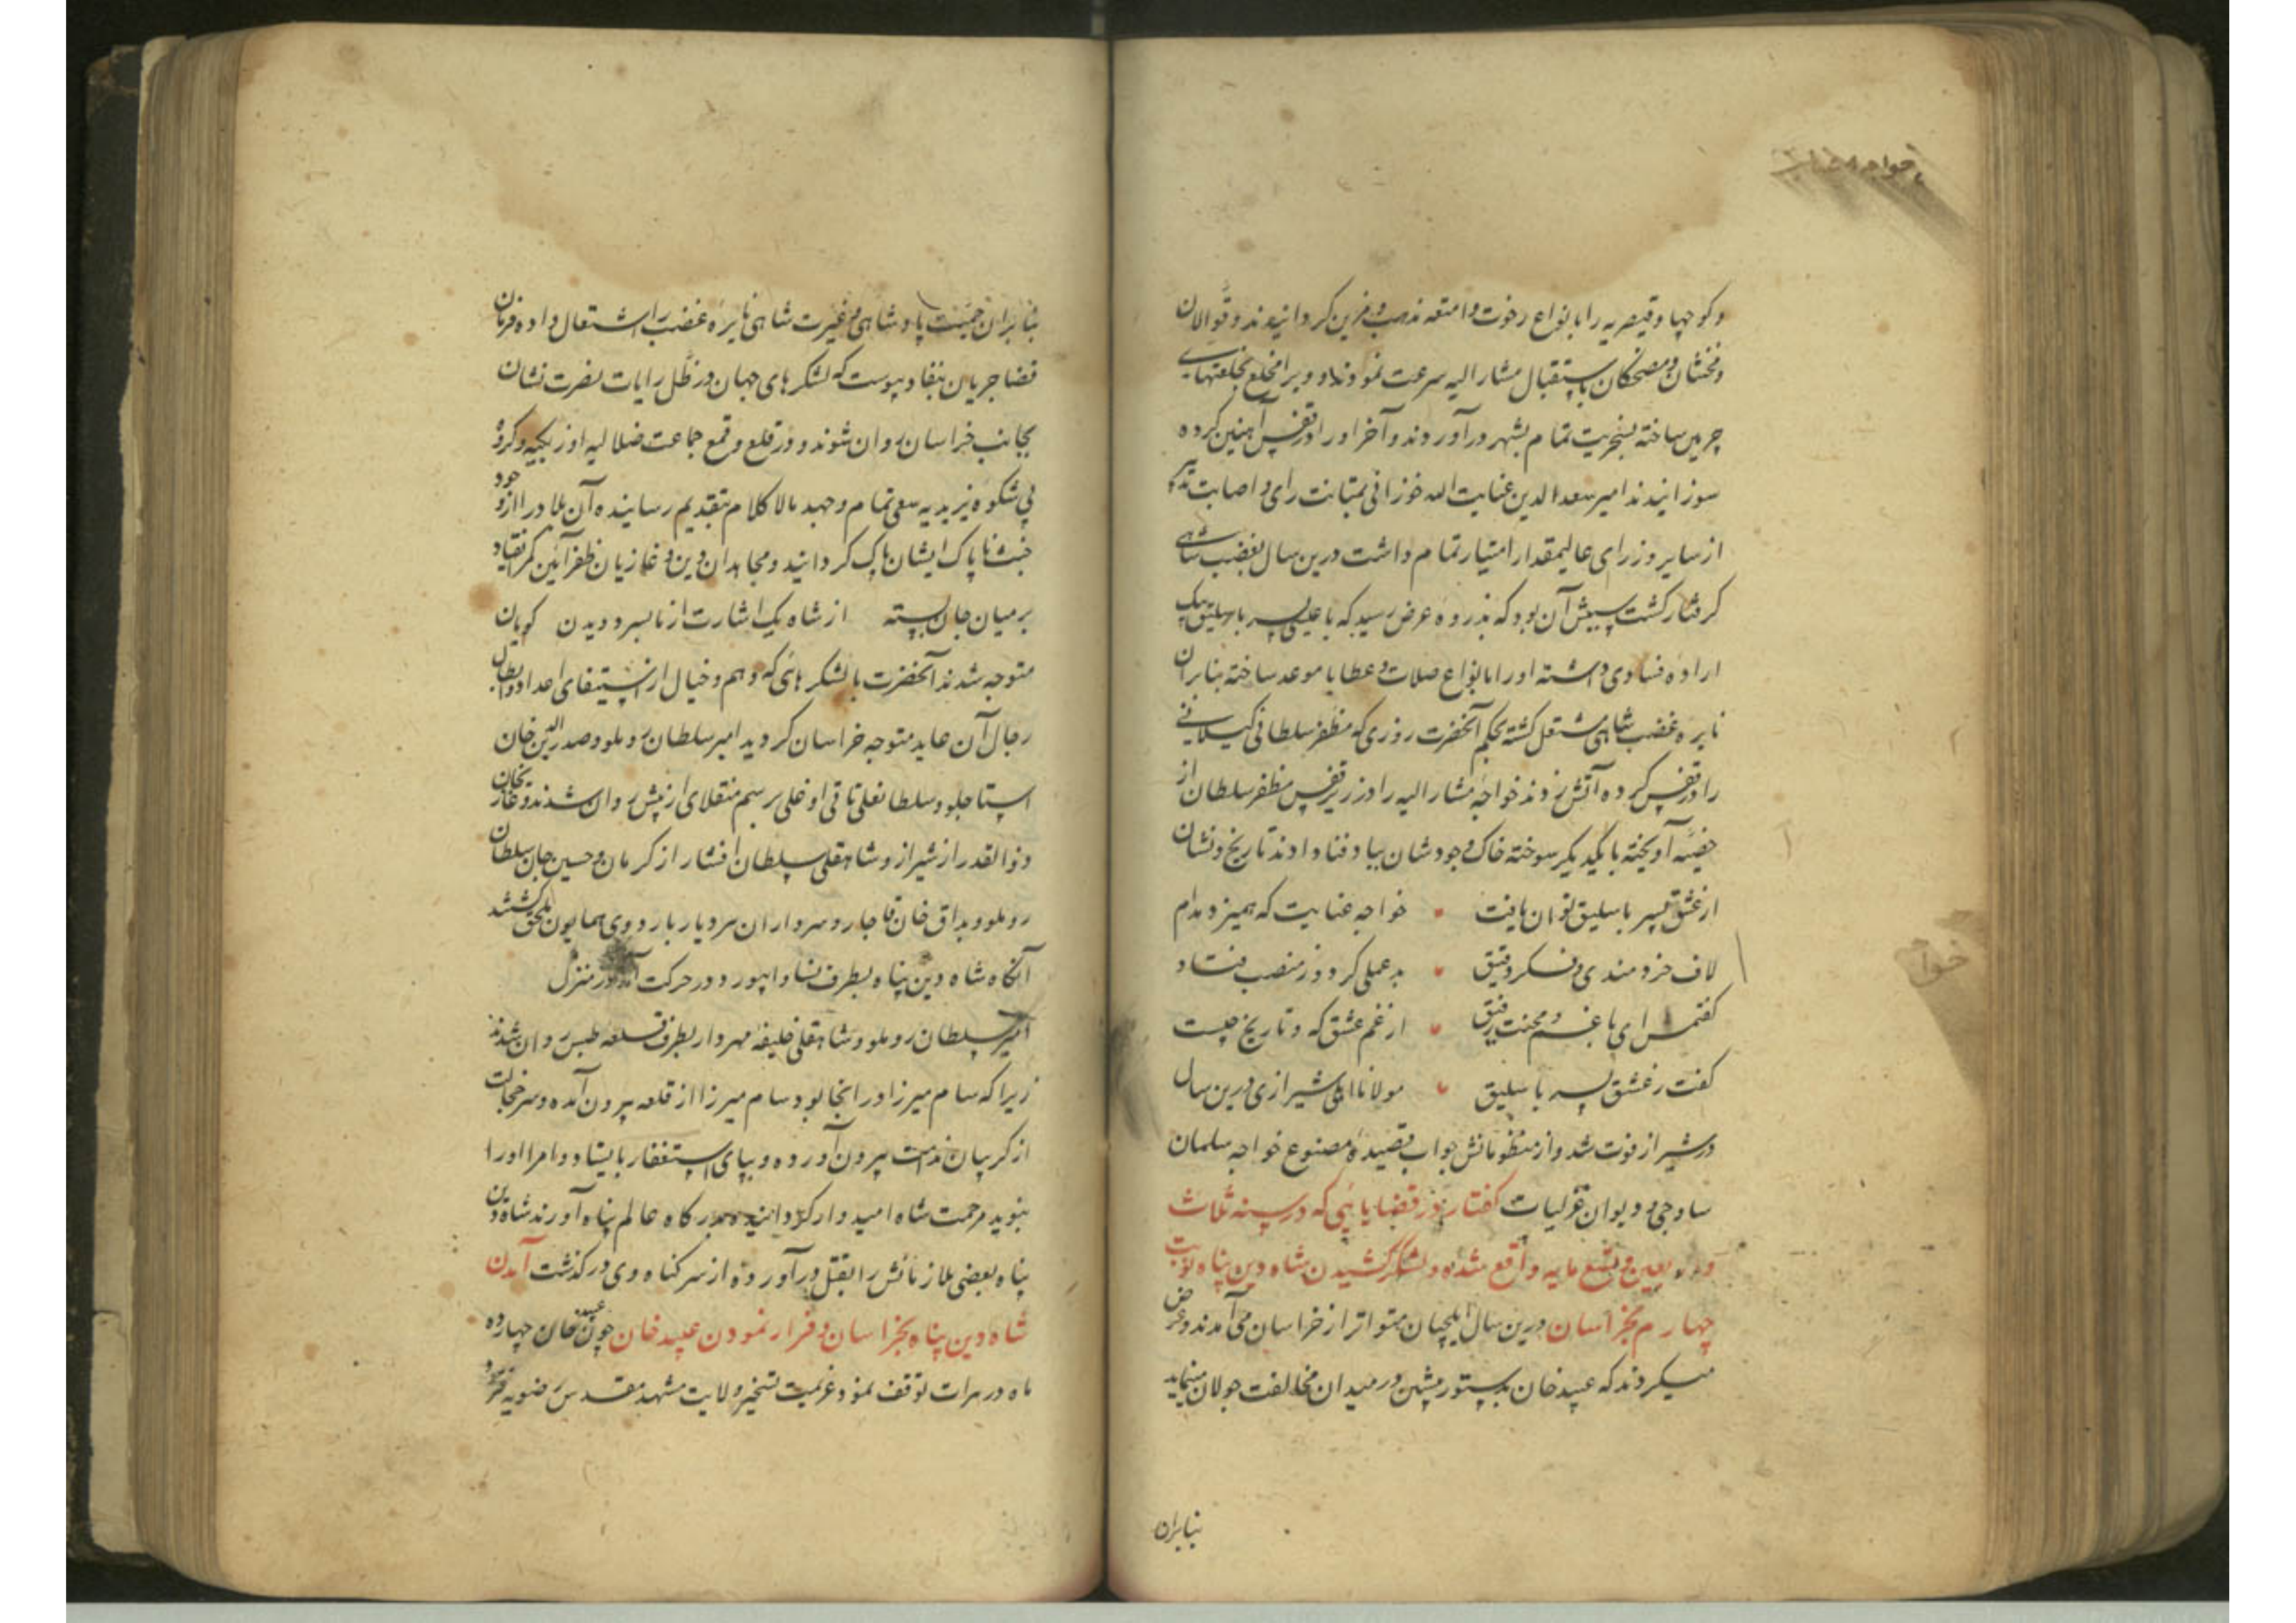 وکوچها وقیصریه را بانواع رخوت وامتعه مذهب ومزین کردانیدند وقوالان
ومخنثان ومضحکان باستقبال مشارالیه سرعت نمودند و ویرا مخلع بخلعتهای
چرمین ساخته بسخریت تمام بشهر درآوردند وآخر اورا درقفس آهنین کرده
سوزانیدند امیر سعدالدین عنایت الله خوزانی بمتانت رای و اصابت تدبیر
از سایر وزرای عالیمقدار امتیاز تمام داشت درین سال بغضب شاهی
کرفتار کشت سببش آن بود که بذروه عرض رسید که با علی پسر باسلیق بیک
اراده فسادی داشته اورا بانواع صلات و عطایا موعد ساخته بنابران
نایره غضب شاهی مشتعل کشته بحکم آنحضرت روزی که مظفر سلطان کیلانی
را درقفس کرده آتش زدند خواجه مشارالیه را در زیر قفس مظفر سلطان از
خصیه آویخته با یکدیگر سوخته خاک وجودشان بباد فنا دادند تاریخ ونشان
از عشق پسر باسلیق توان یافت خواجه عنایت که همیزد مدام
لاف خردمندی و فکر دقیق بدعملی کرد وز منصب فتاد
کفتمش ای با غم و محنت رفیق از غم عشق که و تاریخ چیست
کفت ز عشق پسر باسلیق مولانا اهلی شیرازی درین سال
درشیراز فوت شد واز منظوماتش جواب قصیده مصنوع خواجه سلمان
ساوجی و دیوان غزلیات کفتار در قضایائی که درسنه ثلاث
واربعین وتسعمایه واقع شده و لشکر کشیدن شاه دین پناه نوبت
چهارم بخراسان درین سال ایلچیان متواتر از خراسان می آمدند وعرض
میکردند که عبید خان بدستور پیشین در میدان مخالفت جولان مینماید
بنابران
بنابران حمیت پادشاهی و غیرت شاهی نایره غضب را اشتعال داده فرمان
قضا جریان بنفاد پیوست که لشکرهای جهان در ظل رایات نصرت نشان
بجانب خراسان روان شوند و در قلع وقمع جماعت ضلالیه اوزبکیه وکروه
بی شکوه یزیدیه سعی تمام وجهد مالاکلام بتقدیم رسانیده آن بلاد را از وجود
خبث ناپاک ایشان پاک کردانید ومجاهدان دین و غازیان ظفرآئین کمر انقیاد
برمیان جان بسته از شاه یک اشارت از ما بسر دویدن کویان
متوجه شدند آنحضرت با لشکرهائی که وهم وخیال از استیفای اعداد وابطال
رجال آن عاید متوجه خراسان کردید امیر سلطان روملو و صدرالدین خان
استاجلو و سلطانعلی تاتی اوغلی برسم منقلای از پیش روان شدند وغازیخان
ذوالقدر از شیراز و شاهقلی سلطان افشار از کرمان و حسین جان سلطان
روملو و بداق خان قاجار و سرداران هر دیار باردوی همایون ملحق کشتند
آنکاه شاه دین پناه بطرف نسا و ابیورد در حرکت آمد و در منزل
امیر سلطان روملو و شاهقلی خلیفه مهردار بطرف قلعه طبس روان شدند
زیرا که سام میرزا در انجا بود و سام میرزا از قلعه بیرون آمده وسرخجالت
از کریبان ندامت بیرون آورده و بپای استغفار بایستاد و امرا اورا
بنوید مرحمت شاه امیدوار کردانیده بدرکاه عالم پناه آوردند شاه دین
پناه بعضی ملازمانش را بقتل درآورده از سر کناه وی درکذشت آمدن
شاه دین پناه بخراسان و فرار نمودن عبید خان چون عبید خان چهارده
ماه در هرات توقف نمود وعزیمت تسخیر ولایت مشهد مقدس رضویه